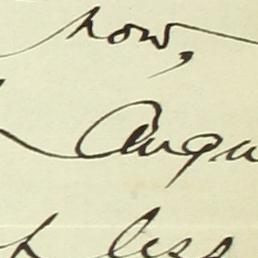 now,
Augu
less